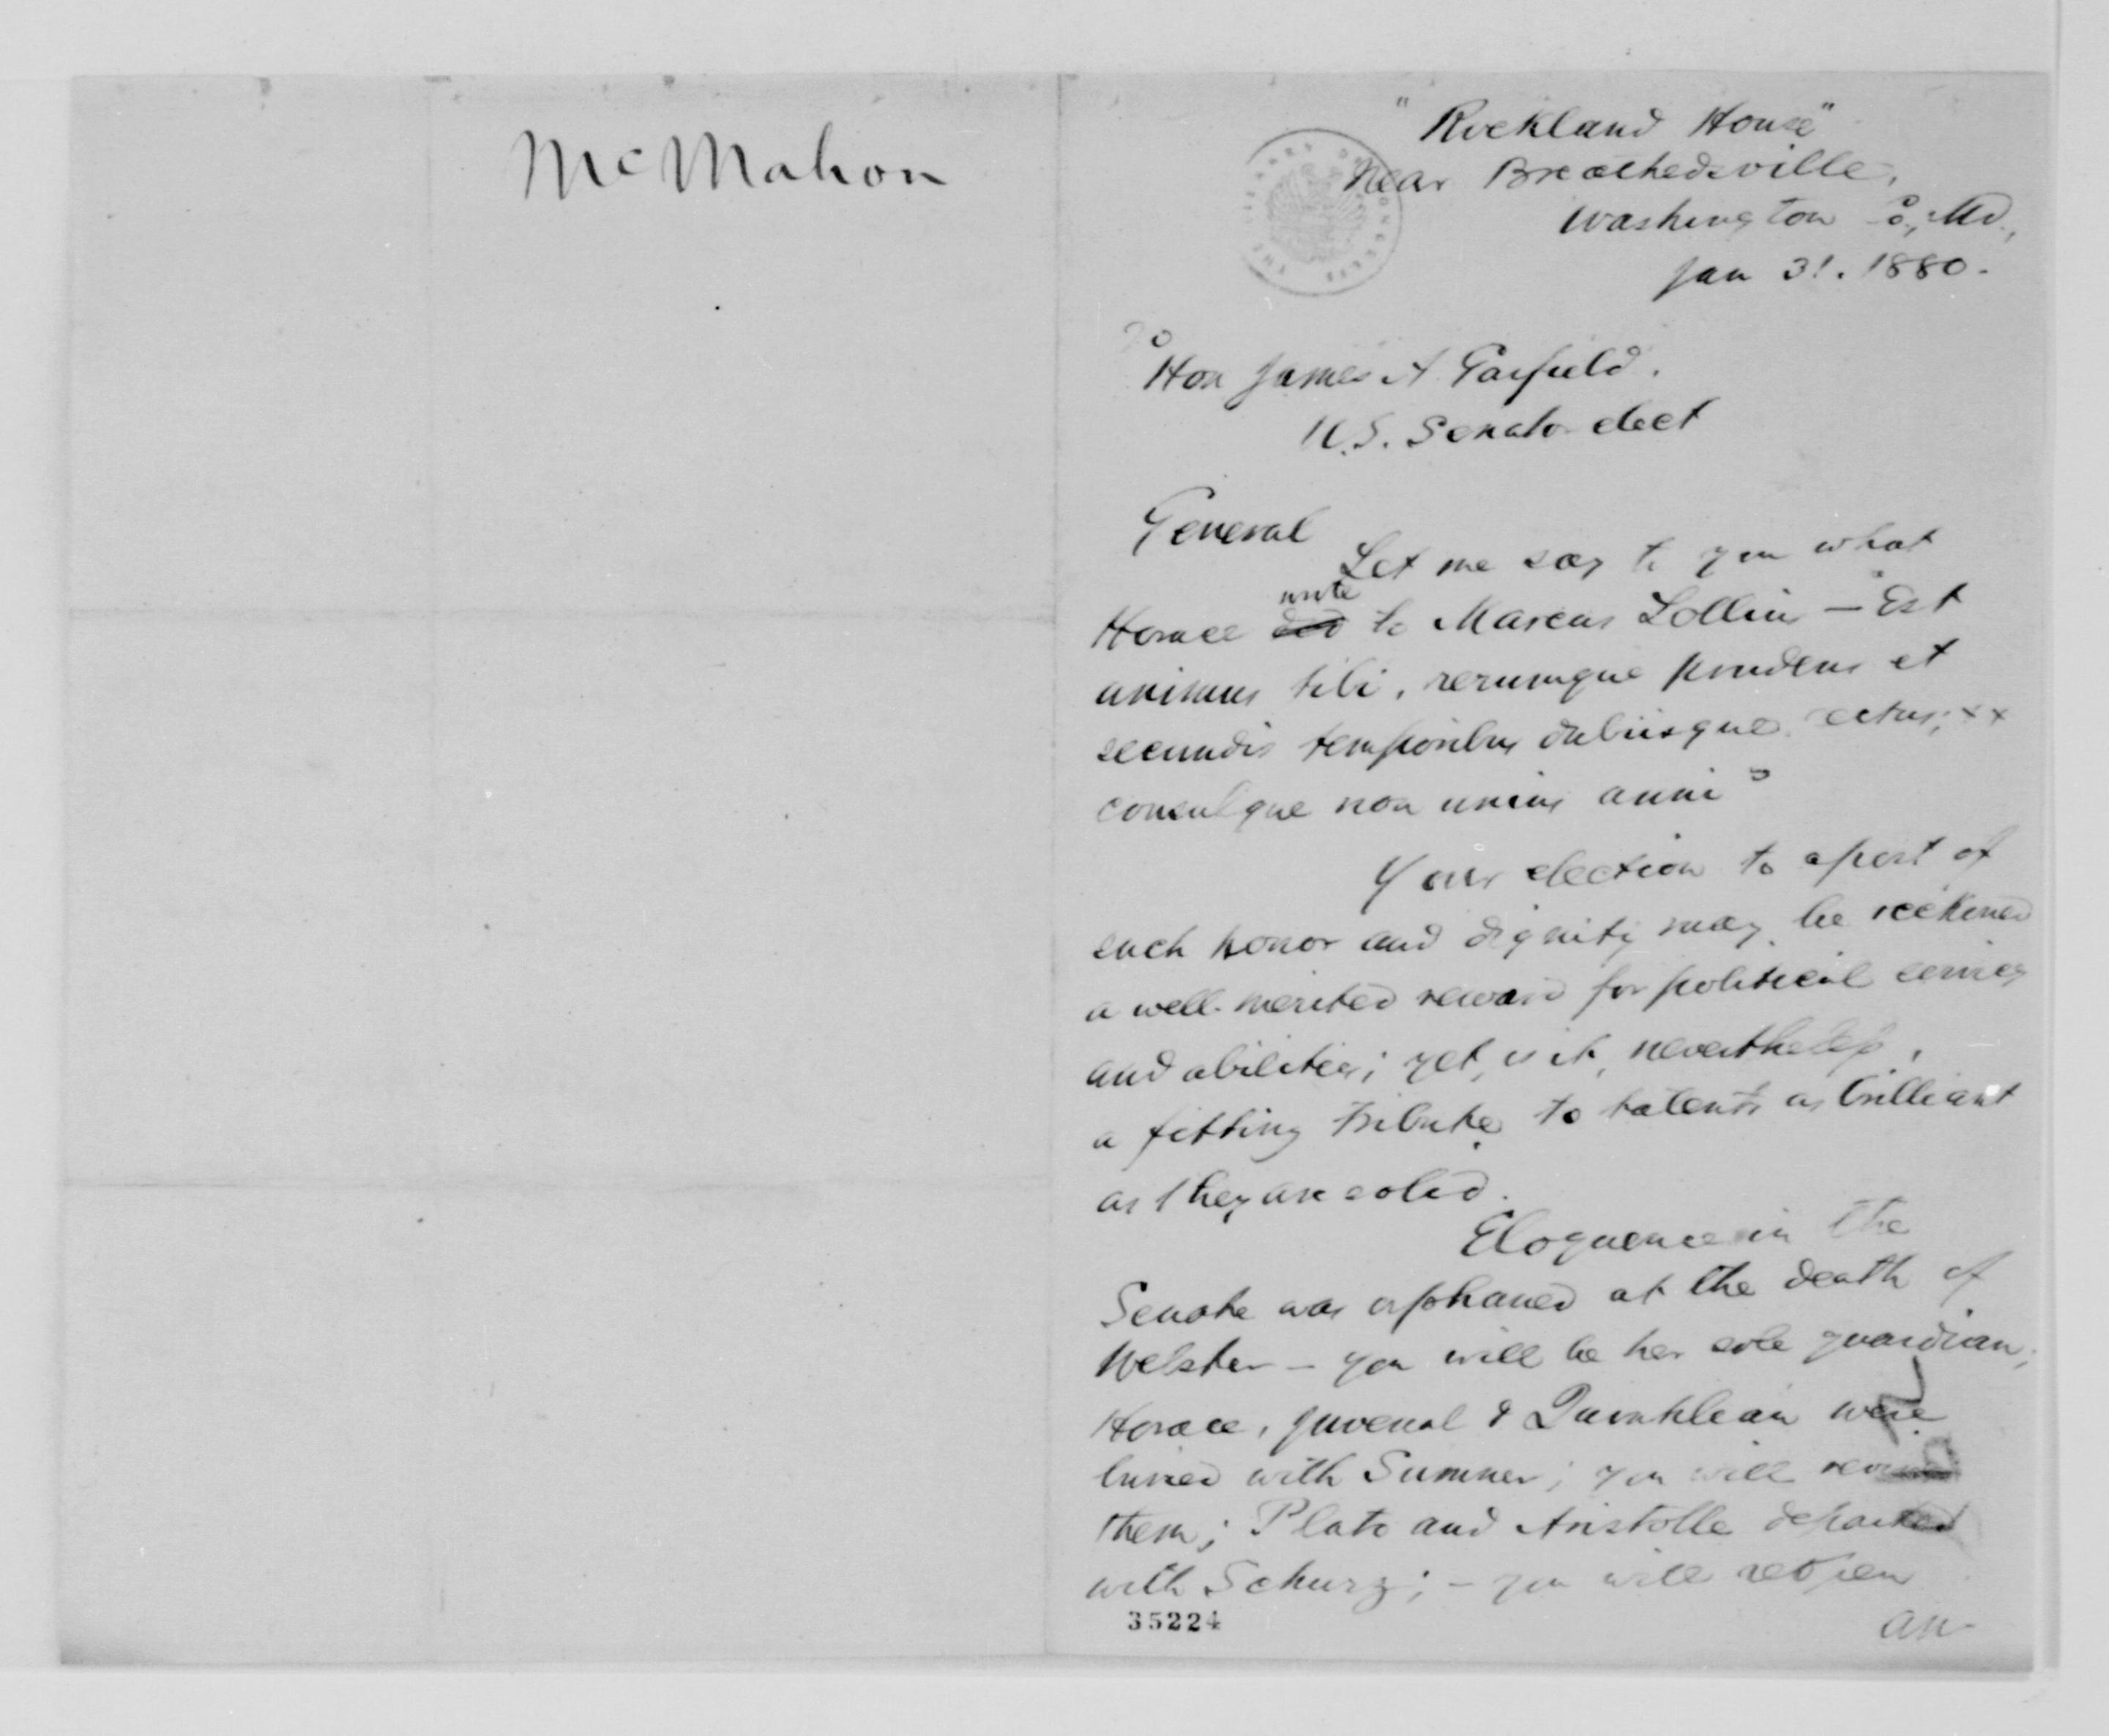 McMahon
"Rockland House"
Near Breathedsville,
Washington Co., Md.,
Jan 31. 1880.
To
Hon James A. Garfield.
U.S. Senator elect
General
Let me say to you what
wrote
Horace did to Marcus Lollius — "Est
animus tibi, rerumque prudens et
secundis temporibus dubiisque rectus; xx
consulque non unius anni"
Your election to a post of
such honor and dignity may be reckoned
a well-merited reward for political services
and abilities; yet, is it, nevertheless,
a fitting tribute to talents as brilliant
as they are solid.
Eloquence in the
Senate was orphaned at the death of
Webster — you will be her sole guardian;
Horace, Juvenal & Quintilian were
buried with Sumner; you will
them; Plato and Aristotle departed
with Schurz; — you will reopen
an
35224